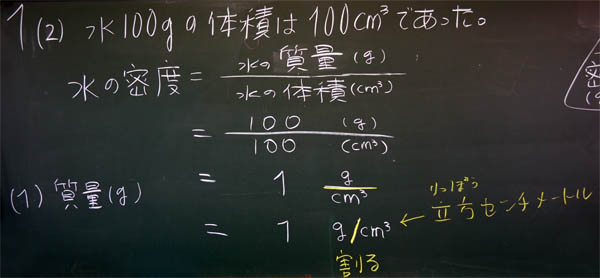 1 (2) 水100gの体積は100cm³であった。
水の密度 = 水の質量(g) / 水の体積(cm³)
= 100 (g) / 100 (cm³)
(1) 質量(g)
= 1 g/cm³
= 1 g/cm³ ← 立方センチメートル
りっぽう
割る
密
(g